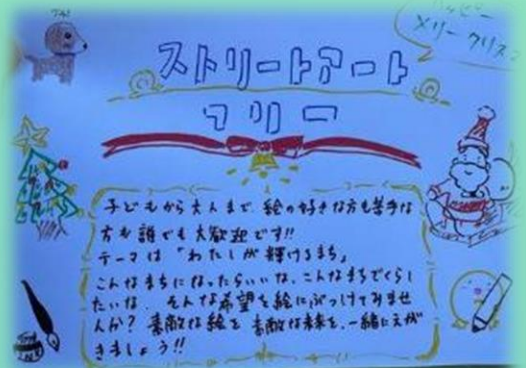 ワン!
ハッピー
メリークリスマ
ストリートアート
フリー
子どもから大人まで、絵の好きな方も苦手な
方も誰でも大歓迎です!!
テーマは「わたしが輝けるまち」
こんなまちになったらいいな、こんなまちでくらし
たいな、そんな希望を絵にぶつけてみませ
んか? 素敵な絵と素敵な未来を、一緒にえが
きましょう!!